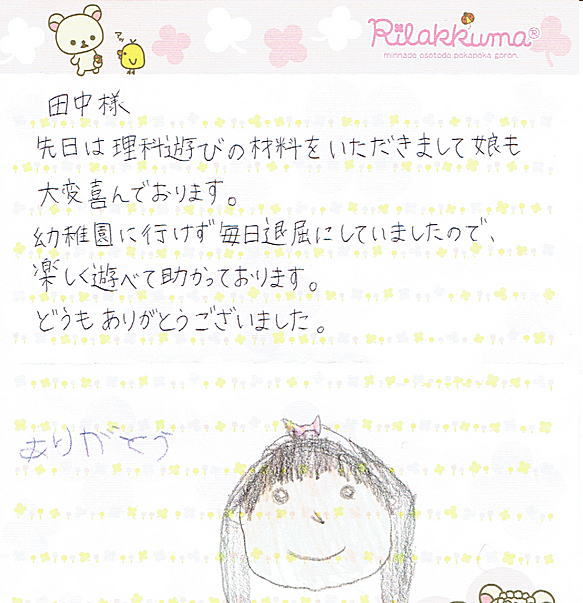 アッ
Rilakkuma®
minnade osotode pokapoka goron.
田中様
先日は理科遊びの材料をいただきまして娘も
大変喜んでおります。
幼稚園に行けず毎日退屈にしていましたので、
楽しく遊べて助かっております。
どうもありがとうございました。
ありがとう